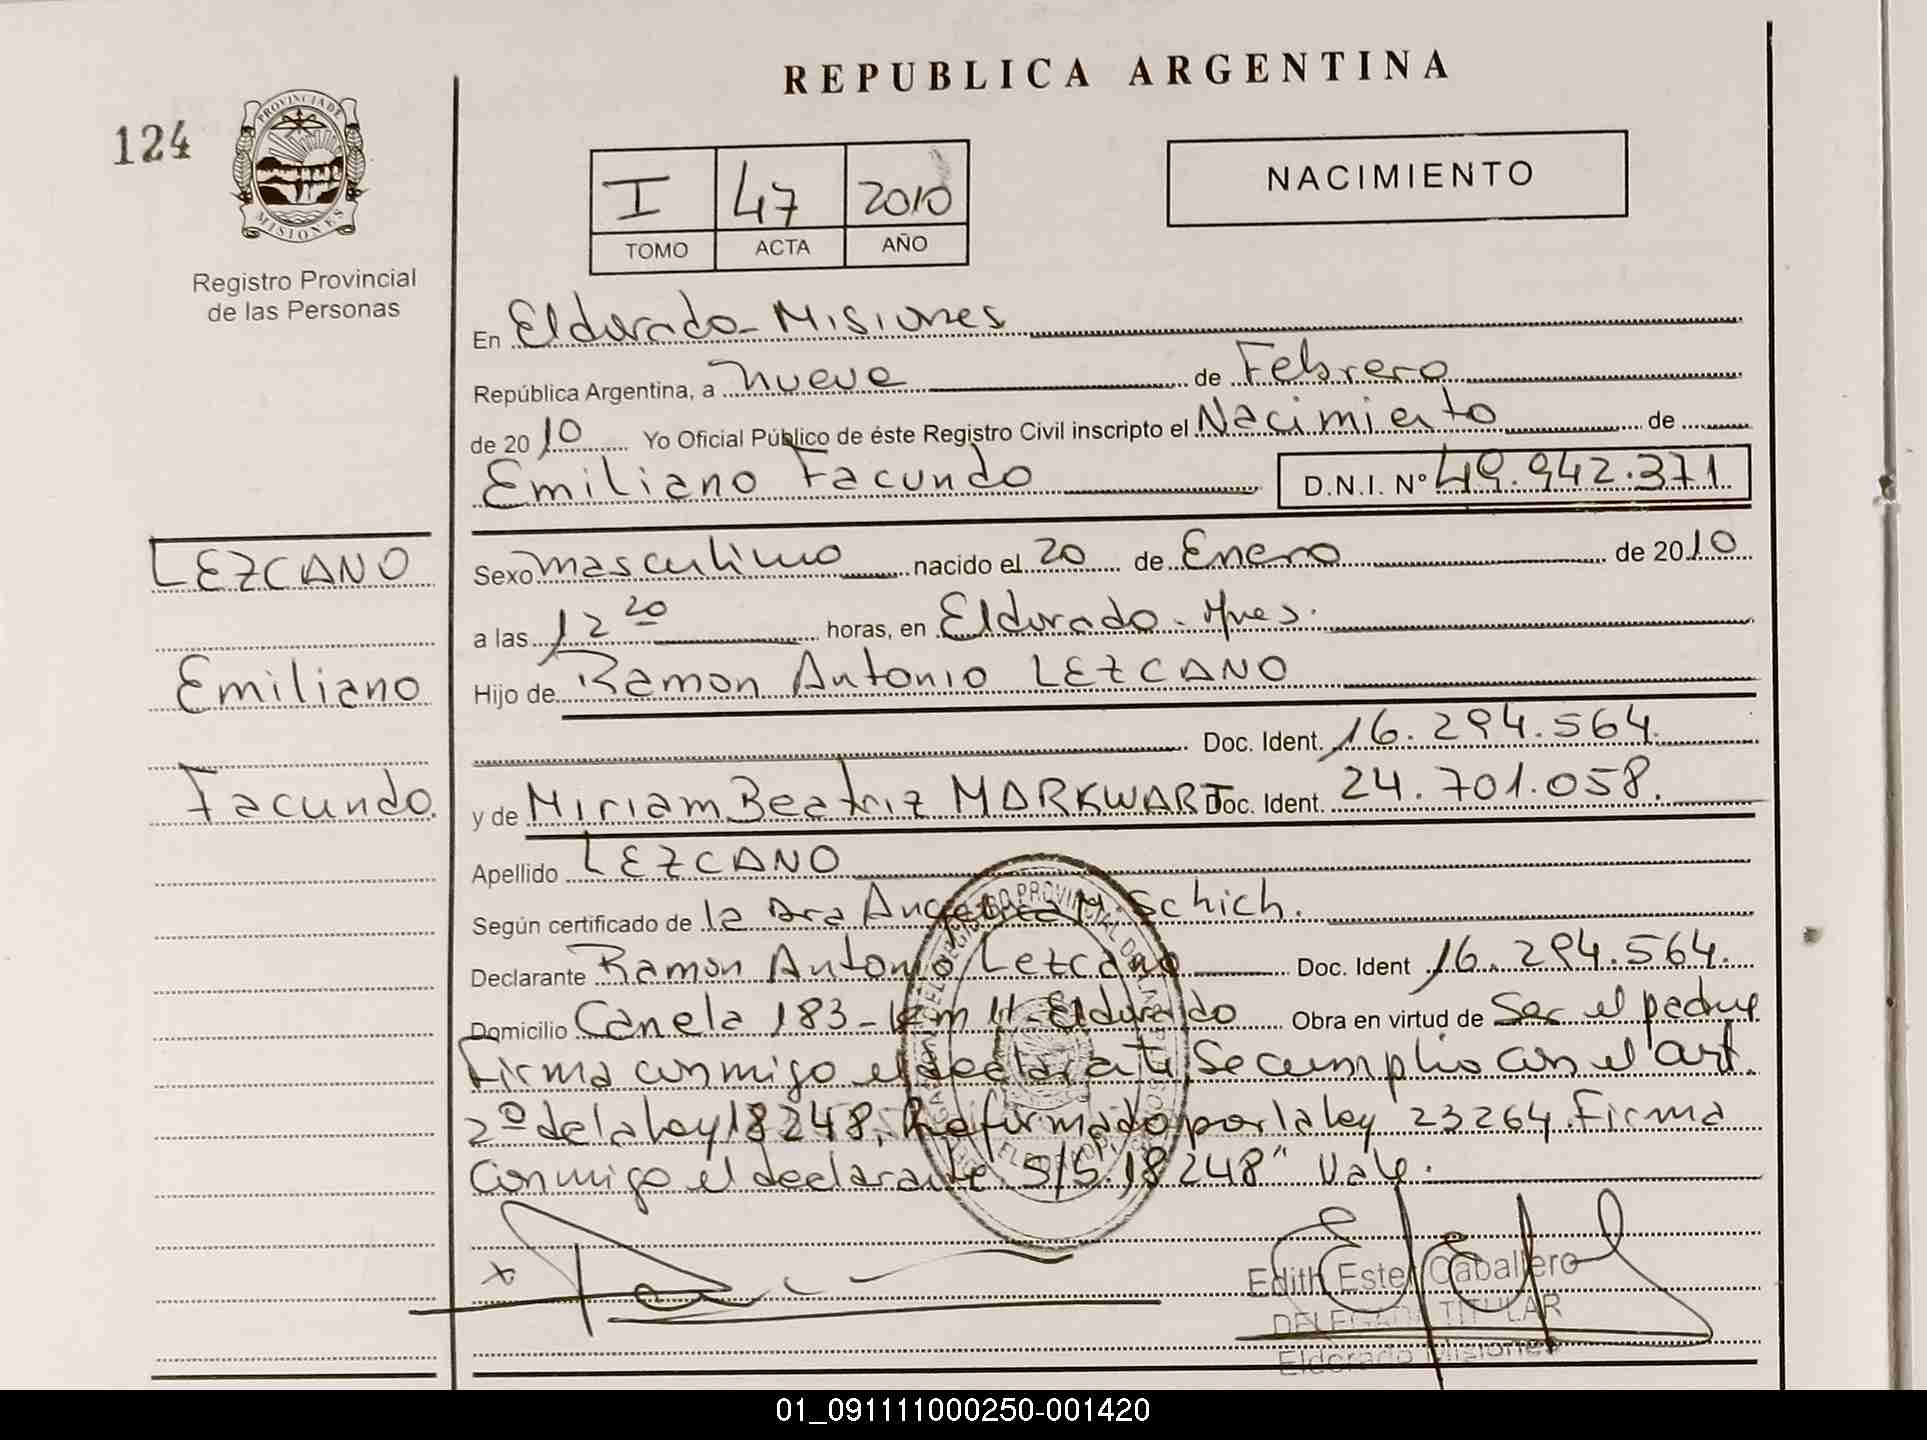 REPUBLICA ARGENTINA
124
PROVINCIA DE
MISIONES
Registro Provincial
de las Personas
I 47 2010
TOMO ACTA AÑO
NACIMIENTO
En Eldorado - Misiones
República Argentina, a nueve de Febrero
de 2010 Yo Oficial Público de éste Registro Civil inscripto el Nacimiento de
Emiliano Facundo D.N.I. N° 49.942.371
LEZCANO
Emiliano
Facundo.
Sexo masculino nacido el 20 de Enero de 2010
a las 12 20 horas, en Eldorado - Mnes.
Hijo de Ramon Antonio LEZCANO
Doc. Ident. 16.294.564.
y de Miriam Beatriz MARKWART Doc. Ident. 24.701.058.
Apellido LEZCANO
Según certificado de la Dra M. Schich.
Declarante Ramon Antonio Lezcano Doc. Ident 16.294.564.
Domicilio Canela 183 - km 11 - Eldorado Obra en virtud de Ser el padre
Firma conmigo el declarante Se cumplio con el art.
2º de la Ley 18248, Reformado por la ley 23264. Firma
Conmigo el declarante S/S. 18248" Vale.
x
Edith Ester Caballero
DELEGADA TITULAR
Eldorado Misiones
01_091111000250-001420